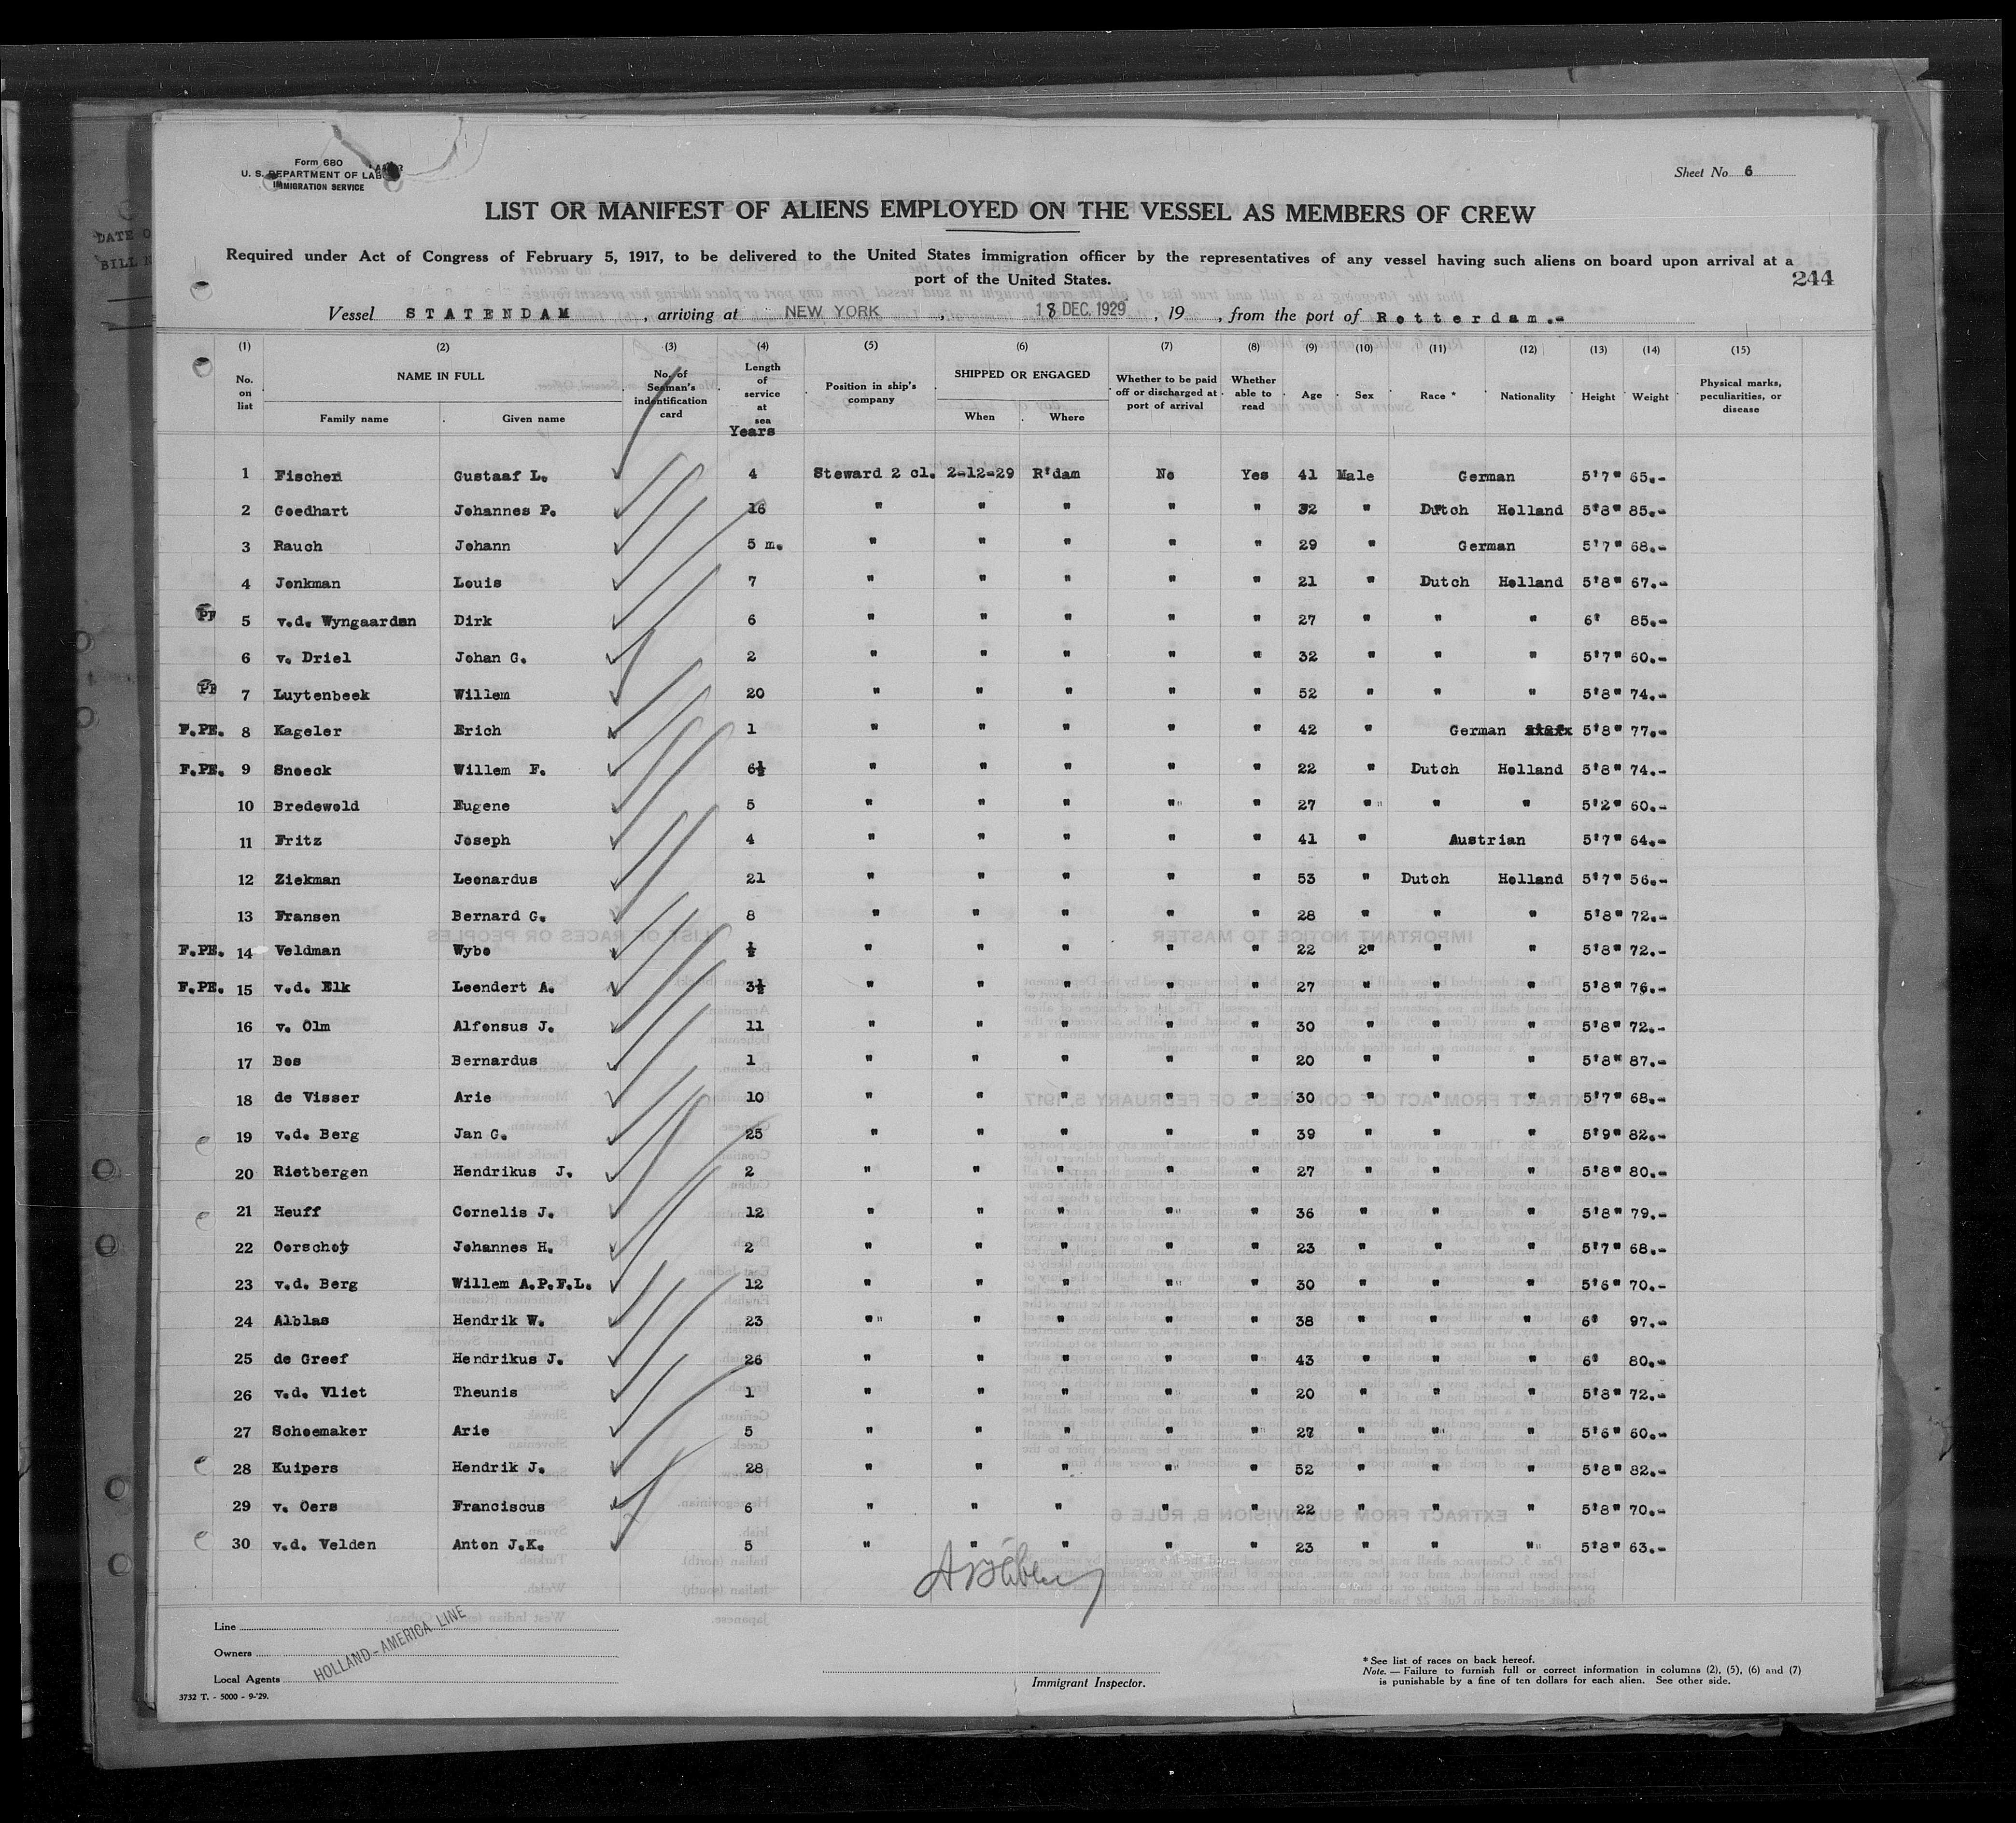 Form 680
U. S. DEPARTMENT OF LABOR
IMMIGRATION SERVICE
Sheet No 6
LIST OR MANIFEST OF ALIENS EMPLOYED ON THE VESSEL AS MEMBERS OF CREW
Required under Act of Congress of February 5, 1917, to be delivered to the United States immigration officer by the representatives of any vessel having such aliens on board upon arrival at a
port of the United States.
244
Vessel STATENDAM, arriving at NEW YORK, 18 DEC. 1929, 19, from the port of Rotterdam.-
(1) (2) (3) (4) (5) (6) (7) (8) (9) (10) (11) (12) (13) (14) (15)
No. on list NAME IN FULL Family name Given name No. of Seaman's indentification card Length of service at sea Years Position in ship's company SHIPPED OR ENGAGED When Where Whether to be paid off or discharged at port of arrival Whether able to read Age Sex Race * Nationality Height Weight Physical marks, peculiarities, or disease
1 Fischer Gustaaf L. 4 Steward 2 cl. 2-12-29 R'dam No Yes 41 Male German 5'7" 65.-
2 Goedhart Johannes P. 16 " " " " " 32 " Dutch Holland 5'8" 85.-
3 Rauch Johann 5 m. " " " " " 29 " German 5'7" 68.-
4 Jonkman Louis 7 " " " " " 21 " Dutch Holland 5'8" 67.-
PF 5 v.d. Wyngaarden Dirk 6 " " " " " 27 " " " 6' 85.-
6 v. Driel Johan G. 2 " " " " " 32 " " " 5'7" 60.-
7 Luytenbeek Willem 20 " " " " " 52 " " " 5'8" 74.-
F.PE. 8 Kageler Erich 1 " " " " " 42 " German 5'8" 77.-
F.PE. 9 Snoeck Willem F. 6½ " " " " " 22 " Dutch Holland 5'8" 74.-
10 Bredewold Eugene 5 " " " " " 27 " " " 5'2" 60.-
11 Fritz Joseph 4 " " " " " 41 " Austrian 5'7" 64.-
12 Ziekman Leonardus 21 " " " " " 53 " Dutch Holland 5'7" 56.-
13 Fransen Bernard G. 8 " " " " " 28 " " " 5'8" 72.-
F.PE. 14 Veldman Wybo ½ " " " " " 22 2" " " 5'8" 72.-
F.PE. 15 v.d. Elk Leendert A. 3½ " " " " " 27 " " " 5'8" 76.-
16 v. Olm Alfonsus J. 11 " " " " " 30 " " " 5'8" 72.-
17 Bos Bernardus 1 " " " " " 20 " " " 5'8" 87.-
18 de Visser Arie 10 " " " " " 30 " " " 5'7" 68.-
19 v.d. Berg Jan G. 25 " " " " " 39 " " " 5'9" 82.-
20 Rietbergen Hendrikus J. 2 " " " " " 27 " " " 5'8" 80.-
21 Heuff Cornelis J. 12 " " " " " 36 " " " 5'8" 79.-
22 Oorschot Johannes H. 2 " " " " " 23 " " " 5'7" 68.-
23 v.d. Berg Willem A.P.F.L. 12 " " " " " 30 " " " 5'6" 70.-
24 Alblas Hendrik W. 23 " " " " " 38 " " " 6' 97.-
25 de Greef Hendrikus J. 26 " " " " " 43 " " " 6' 80.-
26 v.d. Vliet Theunis 1 " " " " " 20 " " " 5'8" 72.-
27 Schoemaker Arie 5 " " " " " 27 " " " 5'6" 60.-
28 Kuipers Hendrik J. 28 " " " " " 52 " " " 5'8" 82.-
29 v. Oers Franciscus 6 " " " " " 22 " " " 5'8" 70.-
30 v.d. Velden Anton J.K. 5 " " " " " 23 " " " 5'8" 63.-
Line
Owners
Local Agents
HOLLAND-AMERICA LINE
3732 T. - 5000 - 9-'29.
Immigrant Inspector.
* See list of races on back hereof.
Note. — Failure to furnish full or correct information in columns (2), (5), (6) and (7)
is punishable by a fine of ten dollars for each alien. See other side.